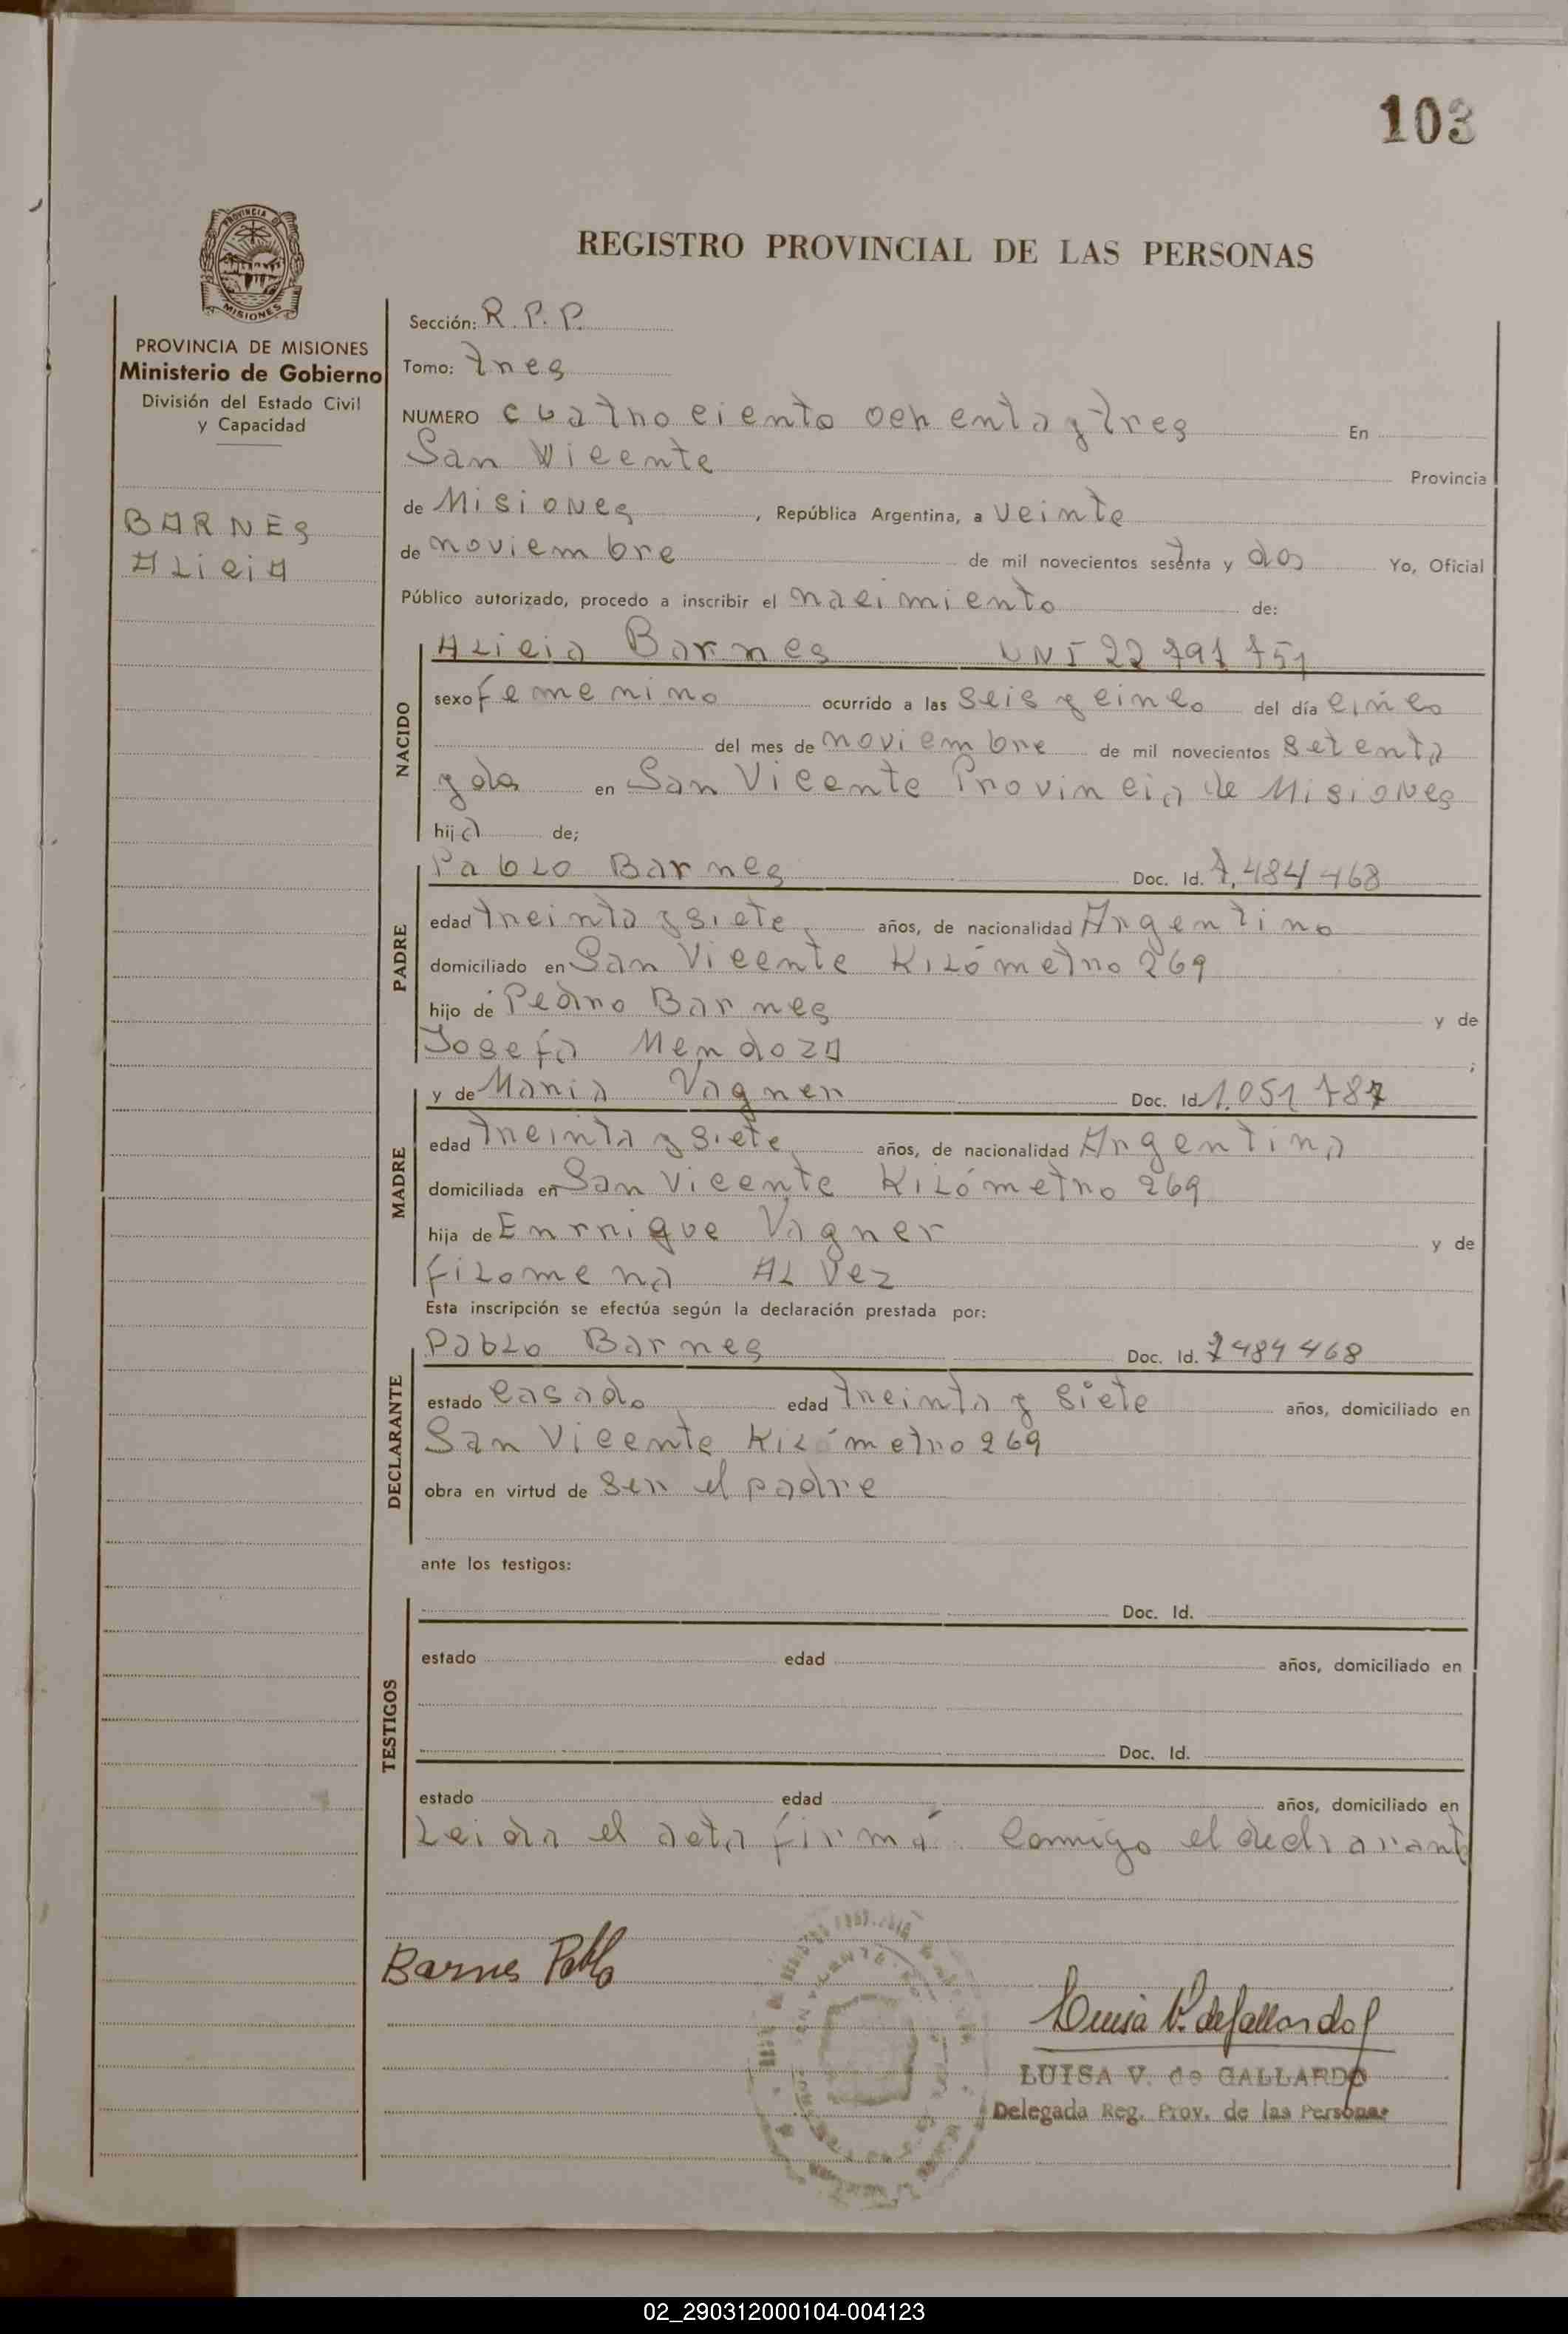 103
REGISTRO PROVINCIAL DE LAS PERSONAS
PROVINCIA DE MISIONES
Ministerio de Gobierno
División del Estado Civil
y Capacidad
BARNES
ALICIA
Sección: R.P.P.
Tomo: tres
NUMERO cuatrociento ochenta y tres En
San Vicente Provincia
de Misiones, República Argentina, a veinte
de noviembre de mil novecientos setenta y dos Yo, Oficial
Público autorizado, procedo a inscribir el nacimiento de:
NACIDO
Alicia Barnes DNI 22791751
sexo femenino ocurrido a las seis y cinco del día cinco
del mes de noviembre de mil novecientos setenta
y dos en San Vicente Provincia de Misiones
hija de;
PADRE
Pablo Barnes Doc. Id. 7.484468
edad treinta y siete años, de nacionalidad Argentino
domiciliado en San Vicente Kilómetro 269
hijo de Pedro Barnes y de
Josefa Mendoza ;
MADRE
y de Maria Vagner Doc. Id 1.051787
edad treinta y siete años, de nacionalidad Argentina
domiciliada en San Vicente Kilómetro 269
hija de Enrrique Vagner y de
filomena Alvez
Esta inscripción se efectúa según la declaración prestada por:
DECLARANTE
Pablo Barnes Doc. Id. 7484468
estado casado edad treinta y siete años, domiciliado en
San Vicente Kilómetro 269
obra en virtud de ser el padre
ante los testigos:
TESTIGOS
Doc. Id.
estado edad años, domiciliado en
Doc. Id.
estado edad años, domiciliado en
Leida el acta firmá conmigo el declarante
Barnes Pablo
Luisa V. de Gallardo
LUISA V. de GALLARDO
Delegada Reg. Prov. de las Personas
02_290312000104-004123